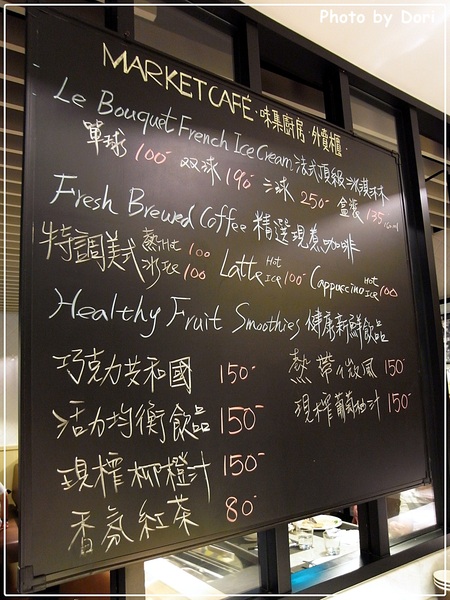 Photo by Dori.
MARKET CAFÉ·味集廚房·外賣櫃
Le Bouquet French Ice Cream 法式頂級冰淇淋
單球 100- 双球 190- 三球 250- 盒裝 135
Fresh Brewed Coffee 精選現煮咖啡
特調美式 熱Hot 100 冰Ice 100 Latte Hot Ice 100- Cappuccino Hot Ice 100
Healthy Fruit Smoothies 健康新鮮飲品
巧克力共和國 150- 熱帶微風 150-
活力均衡飲品 150- 現榨葡萄柚汁 150-
現榨柳橙汁 150-
香氛紅茶 80-